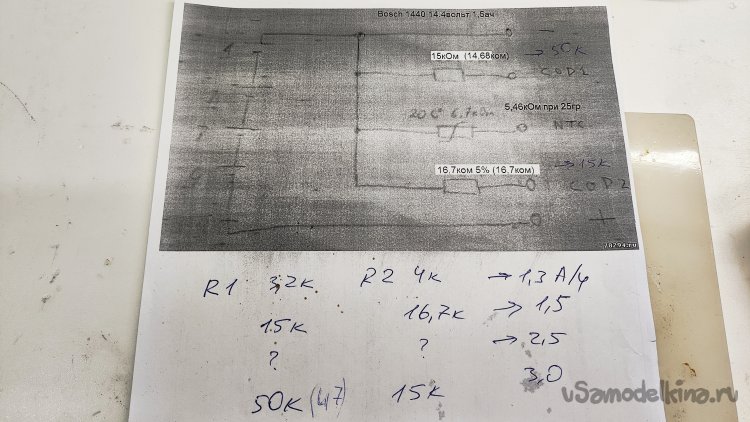 Bosch 1440 14.4вольт 1,5ач
−
15кОм (14,68ком) → 50К
COD1
5,46кОм при 25гр
20C° 6.7кОм NTC
→ 15К
16.7ком 5% (16.7ком)
COD2
+
78294.ru
R1 3,2К R2 4К → 1,3 А/ч
15К 16,7К → 1,5
? ? → 2,5
50К (47) 15К 3,0
vSamodelkina.ru